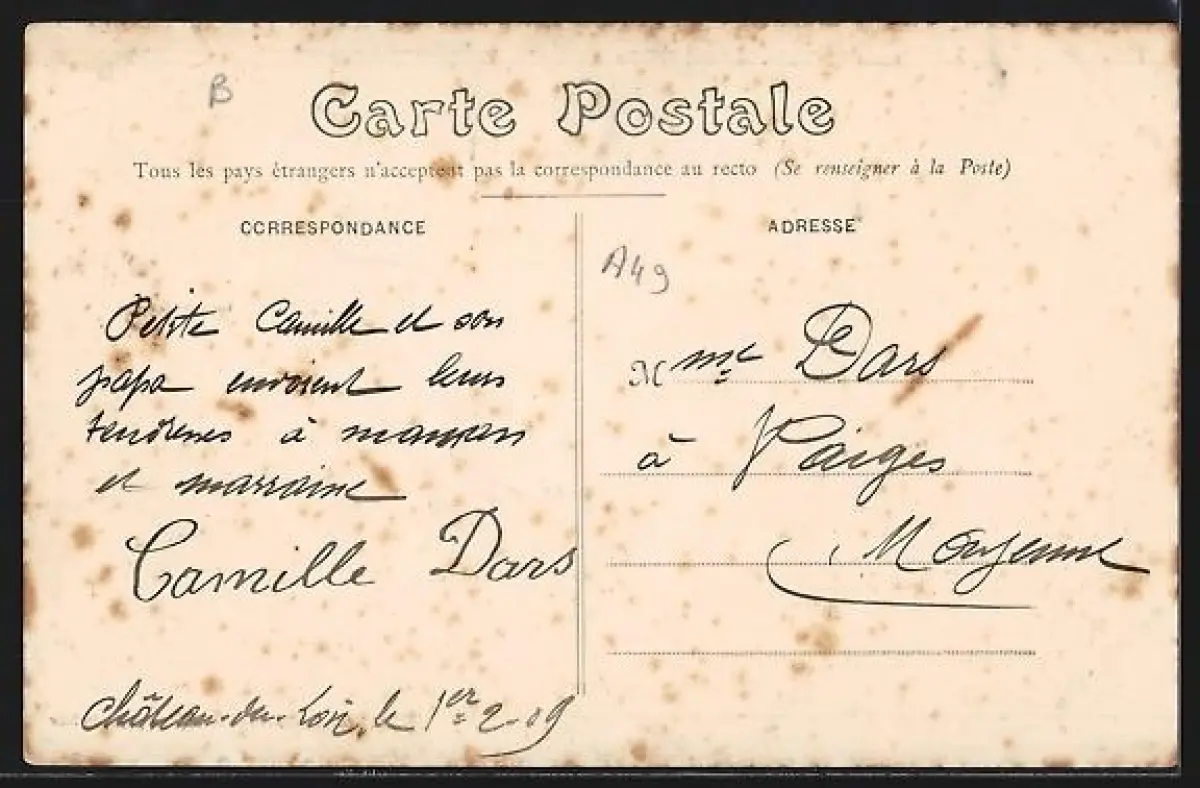 B
Carte Postale
Tous les pays étrangers n'acceptent pas la correspondance au recto (Se renseigner à la Poste)
CORRESPONDANCE
Petite Camille et son
papa envoient leurs
tendresses à maman
et marraine
Camille Dars
Château-du-Loir, le 1er-2-09
ADRESSE
A49
Mme Dars
à Vaiges
(Mayenne